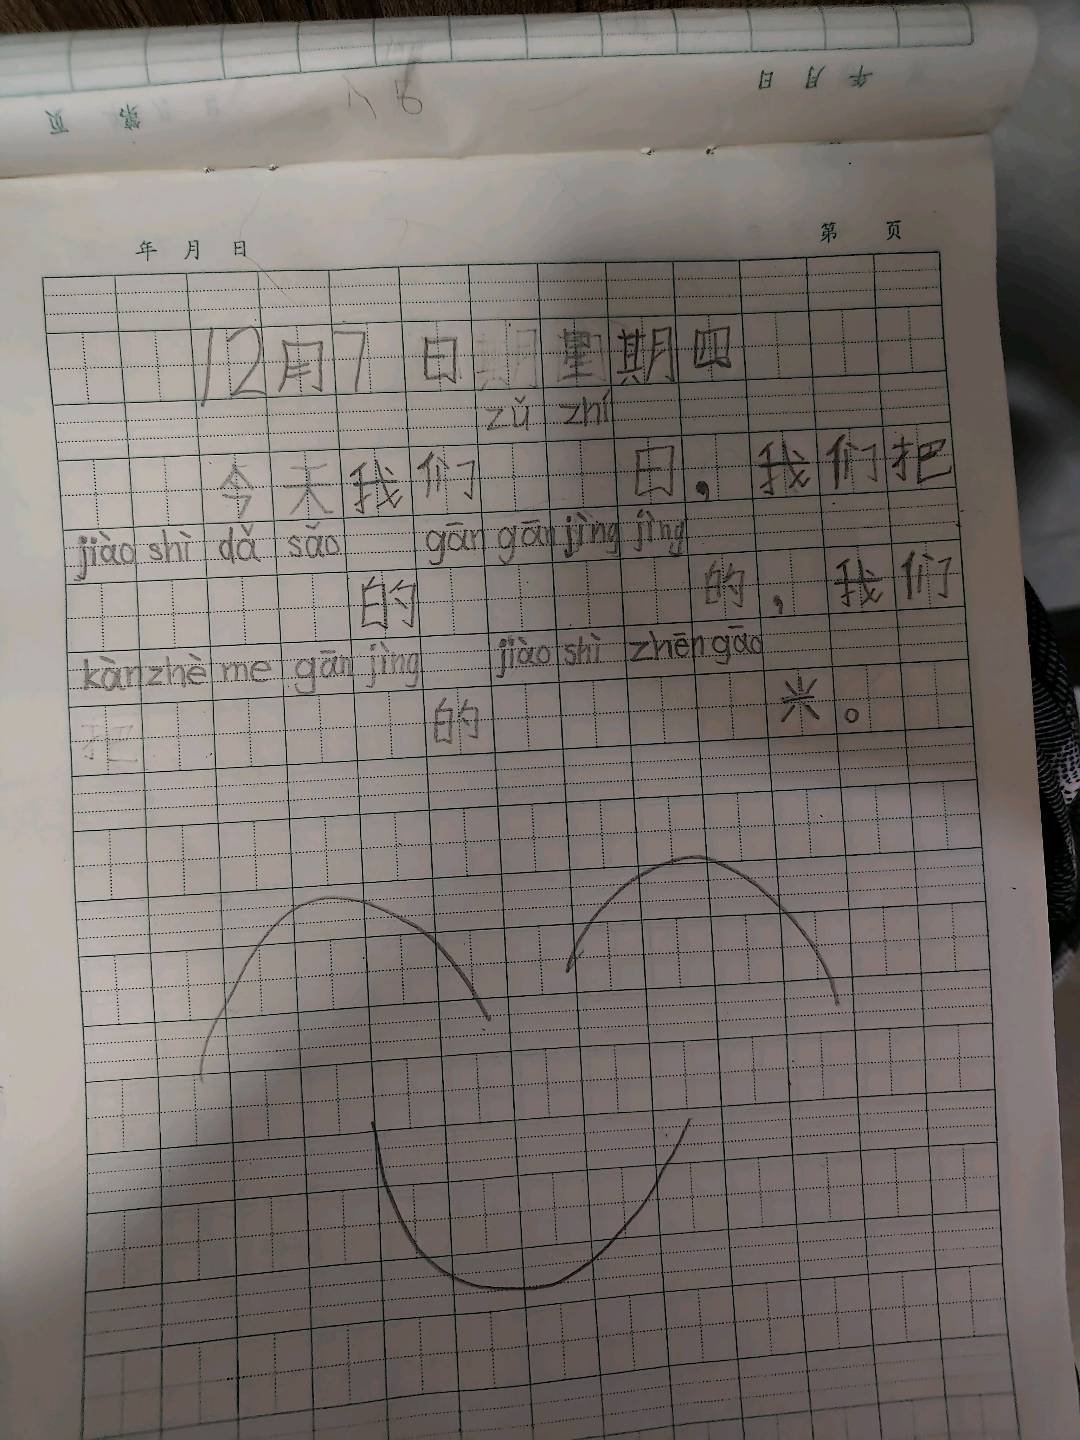 年 月 日
第 页
年 月 日 第 页
12月7日期星期四
zǔ zhí
今天我们 日，我们把
jiào shì dǎ sǎo gān gān jìng jìng
的 的，我们
kàn zhè me gān jìng jiào shì zhēn gāo
把 的 兴。